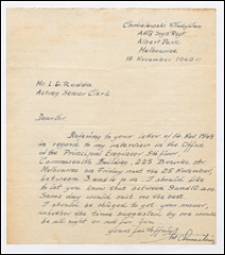 Chmielewski Wladyslaw
Albert Park
Melbourne
18 November 1949
Mr. L. G. Rodda
Acting Senior Clerk
Dear Sir,
Refering to your letter of 16 Nov. 1949
in regard to my interview in the Office
of the Principal Engineer Mr
Commonwealth Building, 225 Bourke Str.
Melbourne on Friday next the 25 November,
between 3 and 4 p.m. I should like
to let you know that between 9 and 12 a.m.
same day would suit me the best.
I should be obliged to get your answer,
whether the time suggested by me would
be all right or not for
Yours faithfully